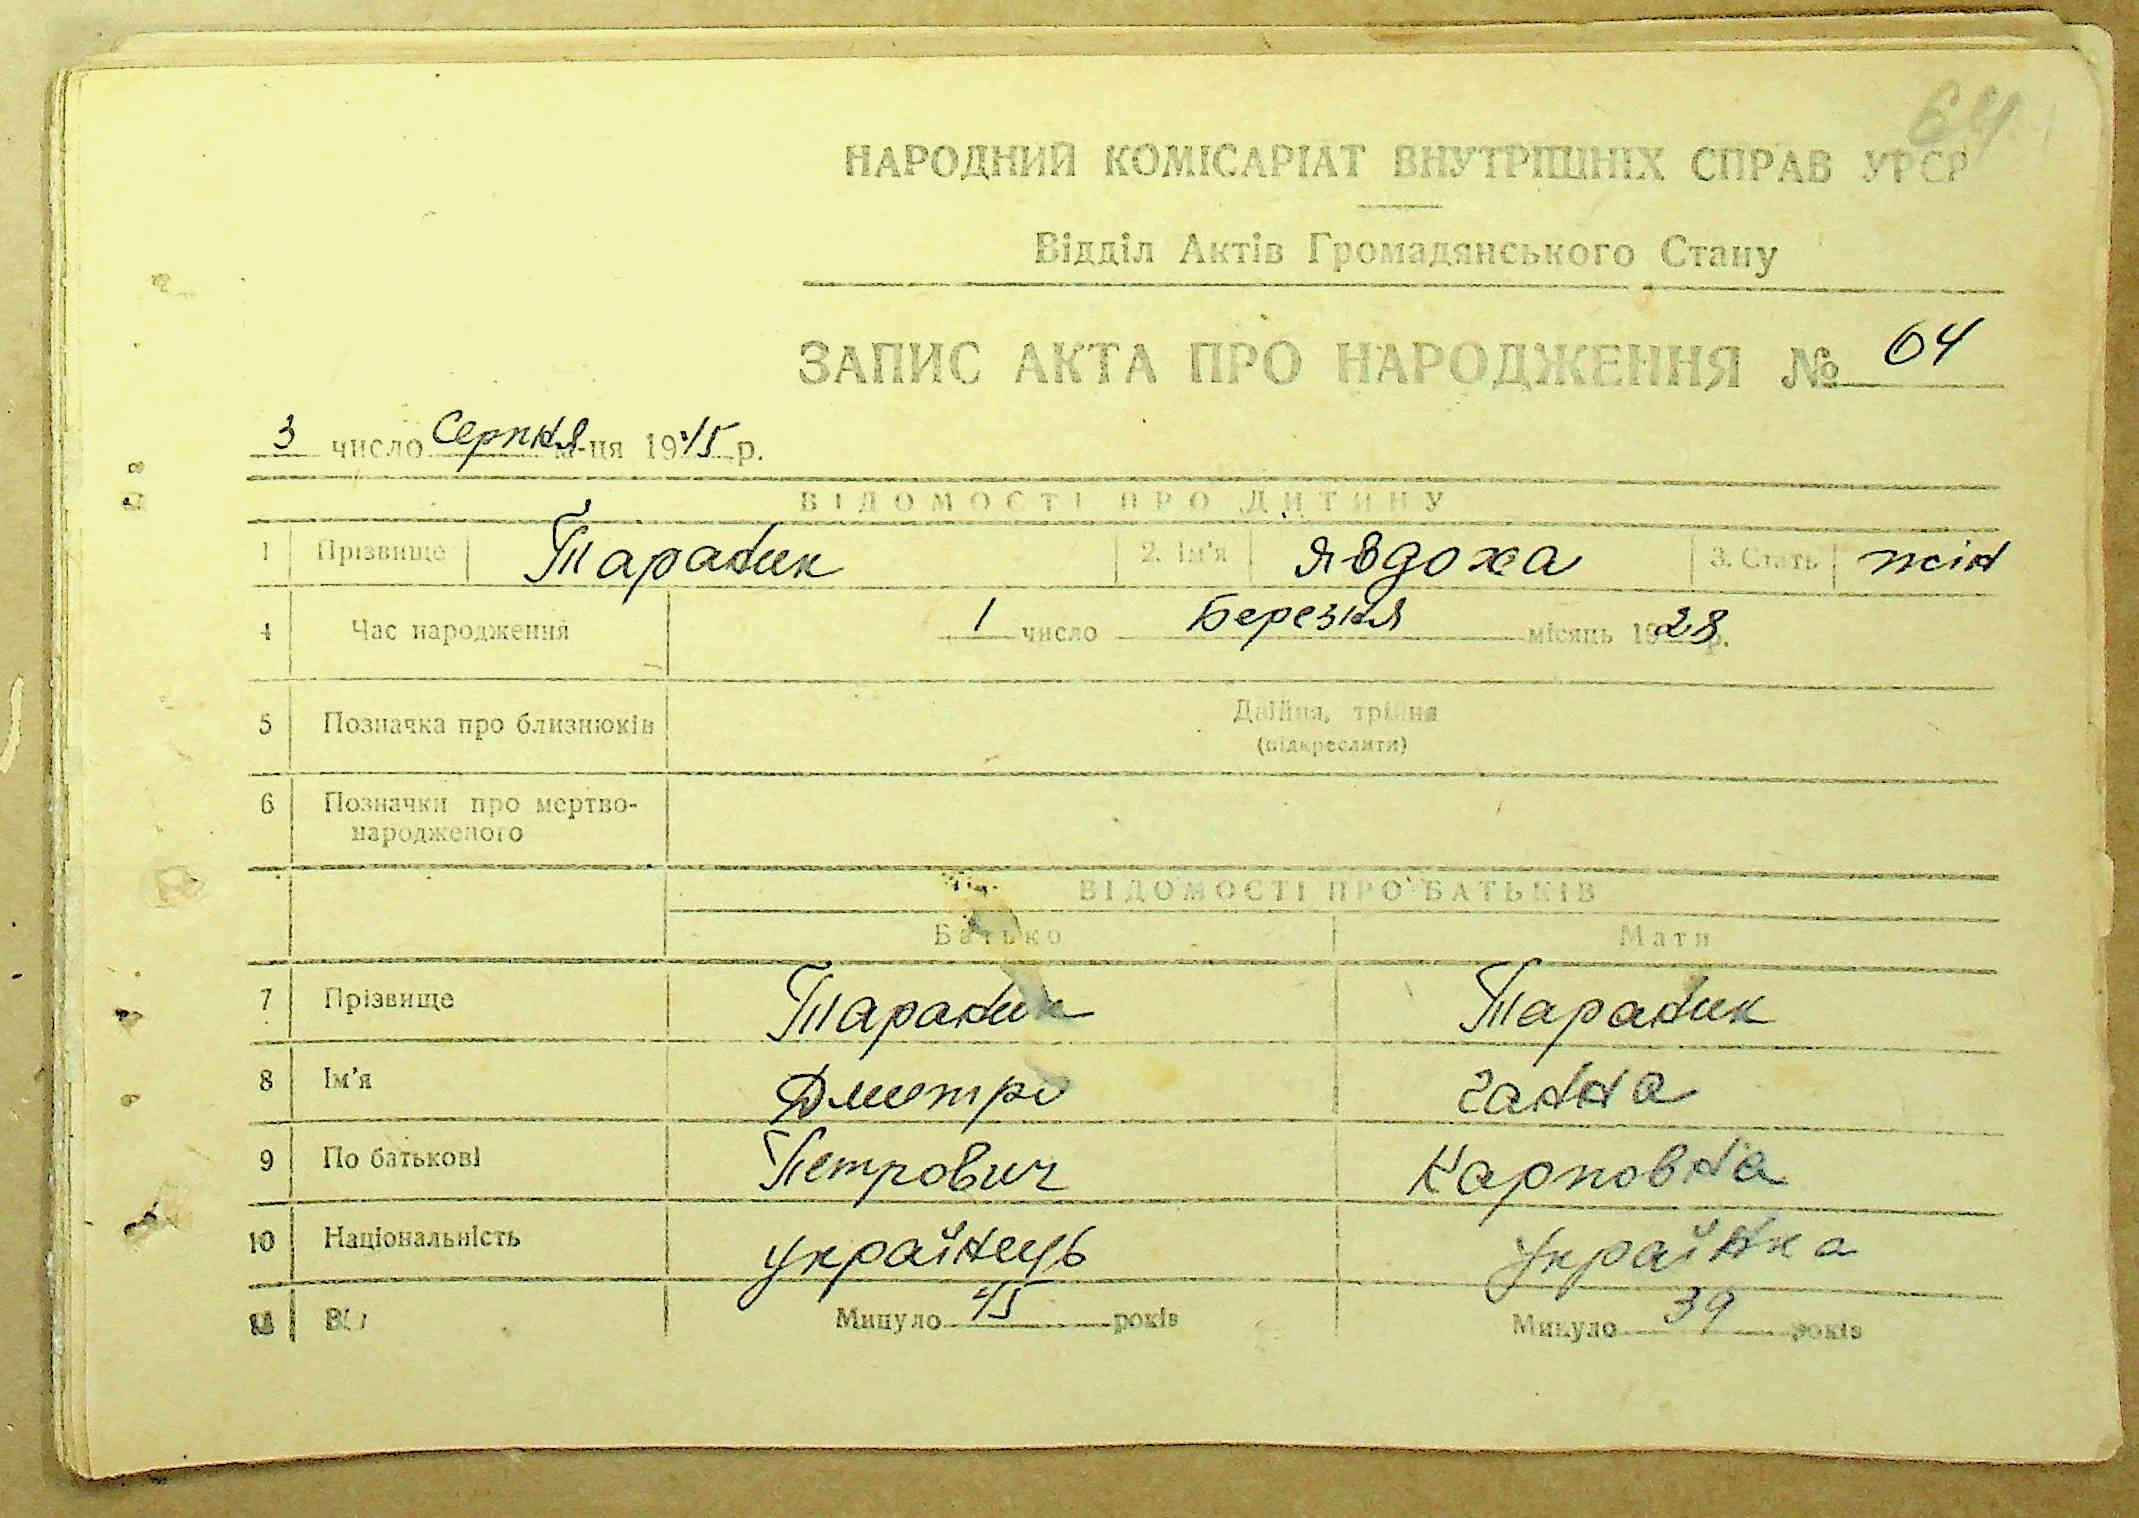 64
НАРОДНИЙ КОМІСАРІАТ ВНУТРІШНІХ СПРАВ УРСР
Відділ Актів Громадянського Стану
ЗАПИС АКТА ПРО НАРОДЖЕННЯ № 64
3 число Серпня м-ця 1945 р.
ВІДОМОСТІ ПРО ДИТИНУ
1 Прізвище Тараник 2. Ім'я Явдоха 3. Стать жін
4 Час народження 1 число Березня місяць 1928 р.
5 Позначка про близнюків Двійня, трійня
(підкреслити)
6 Позначки про мертво-
народженого
ВІДОМОСТІ ПРО БАТЬКІВ
Батько Мати
7 Прізвище Тараник Тараник
8 Ім'я Дмитро Ганна
9 По батькові Петрович Карповна
10 Національність українець українка
11 Вік Минуло 45 років Минуло 39 років